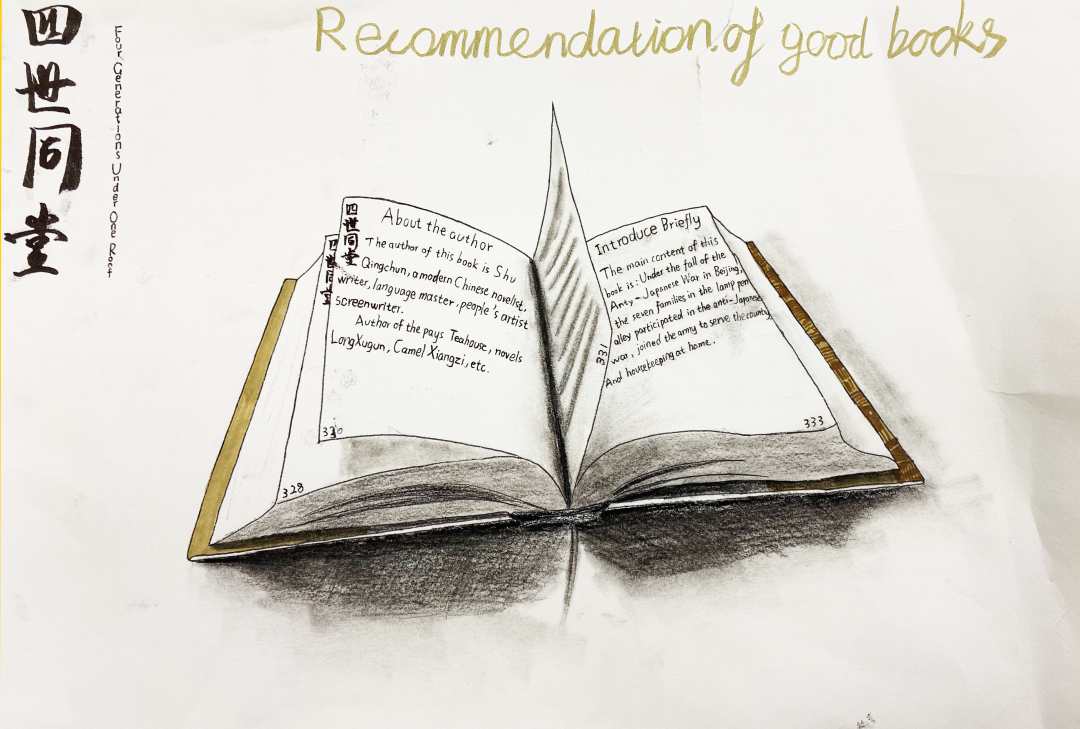 四世同堂
Four Generations Under One Roof
Recommendation of good books
四世同堂
About the author
The author of this book is Shu
Qingchun, a modern Chinese novelist,
writer, language master, people's artist
screenwriter.
Author of the pays Teahouse, novels
LongXugun, Camel Xiangzi, etc.
328
Introduce Briefly
The main content of this
book is: Under the fall of the
Anty-Japanese War in Beijing,
the seven families in the lamp pen
alley participated in the anti-Japanese
war, joined the army to serve the county,
And housekeeping at home.
331
333